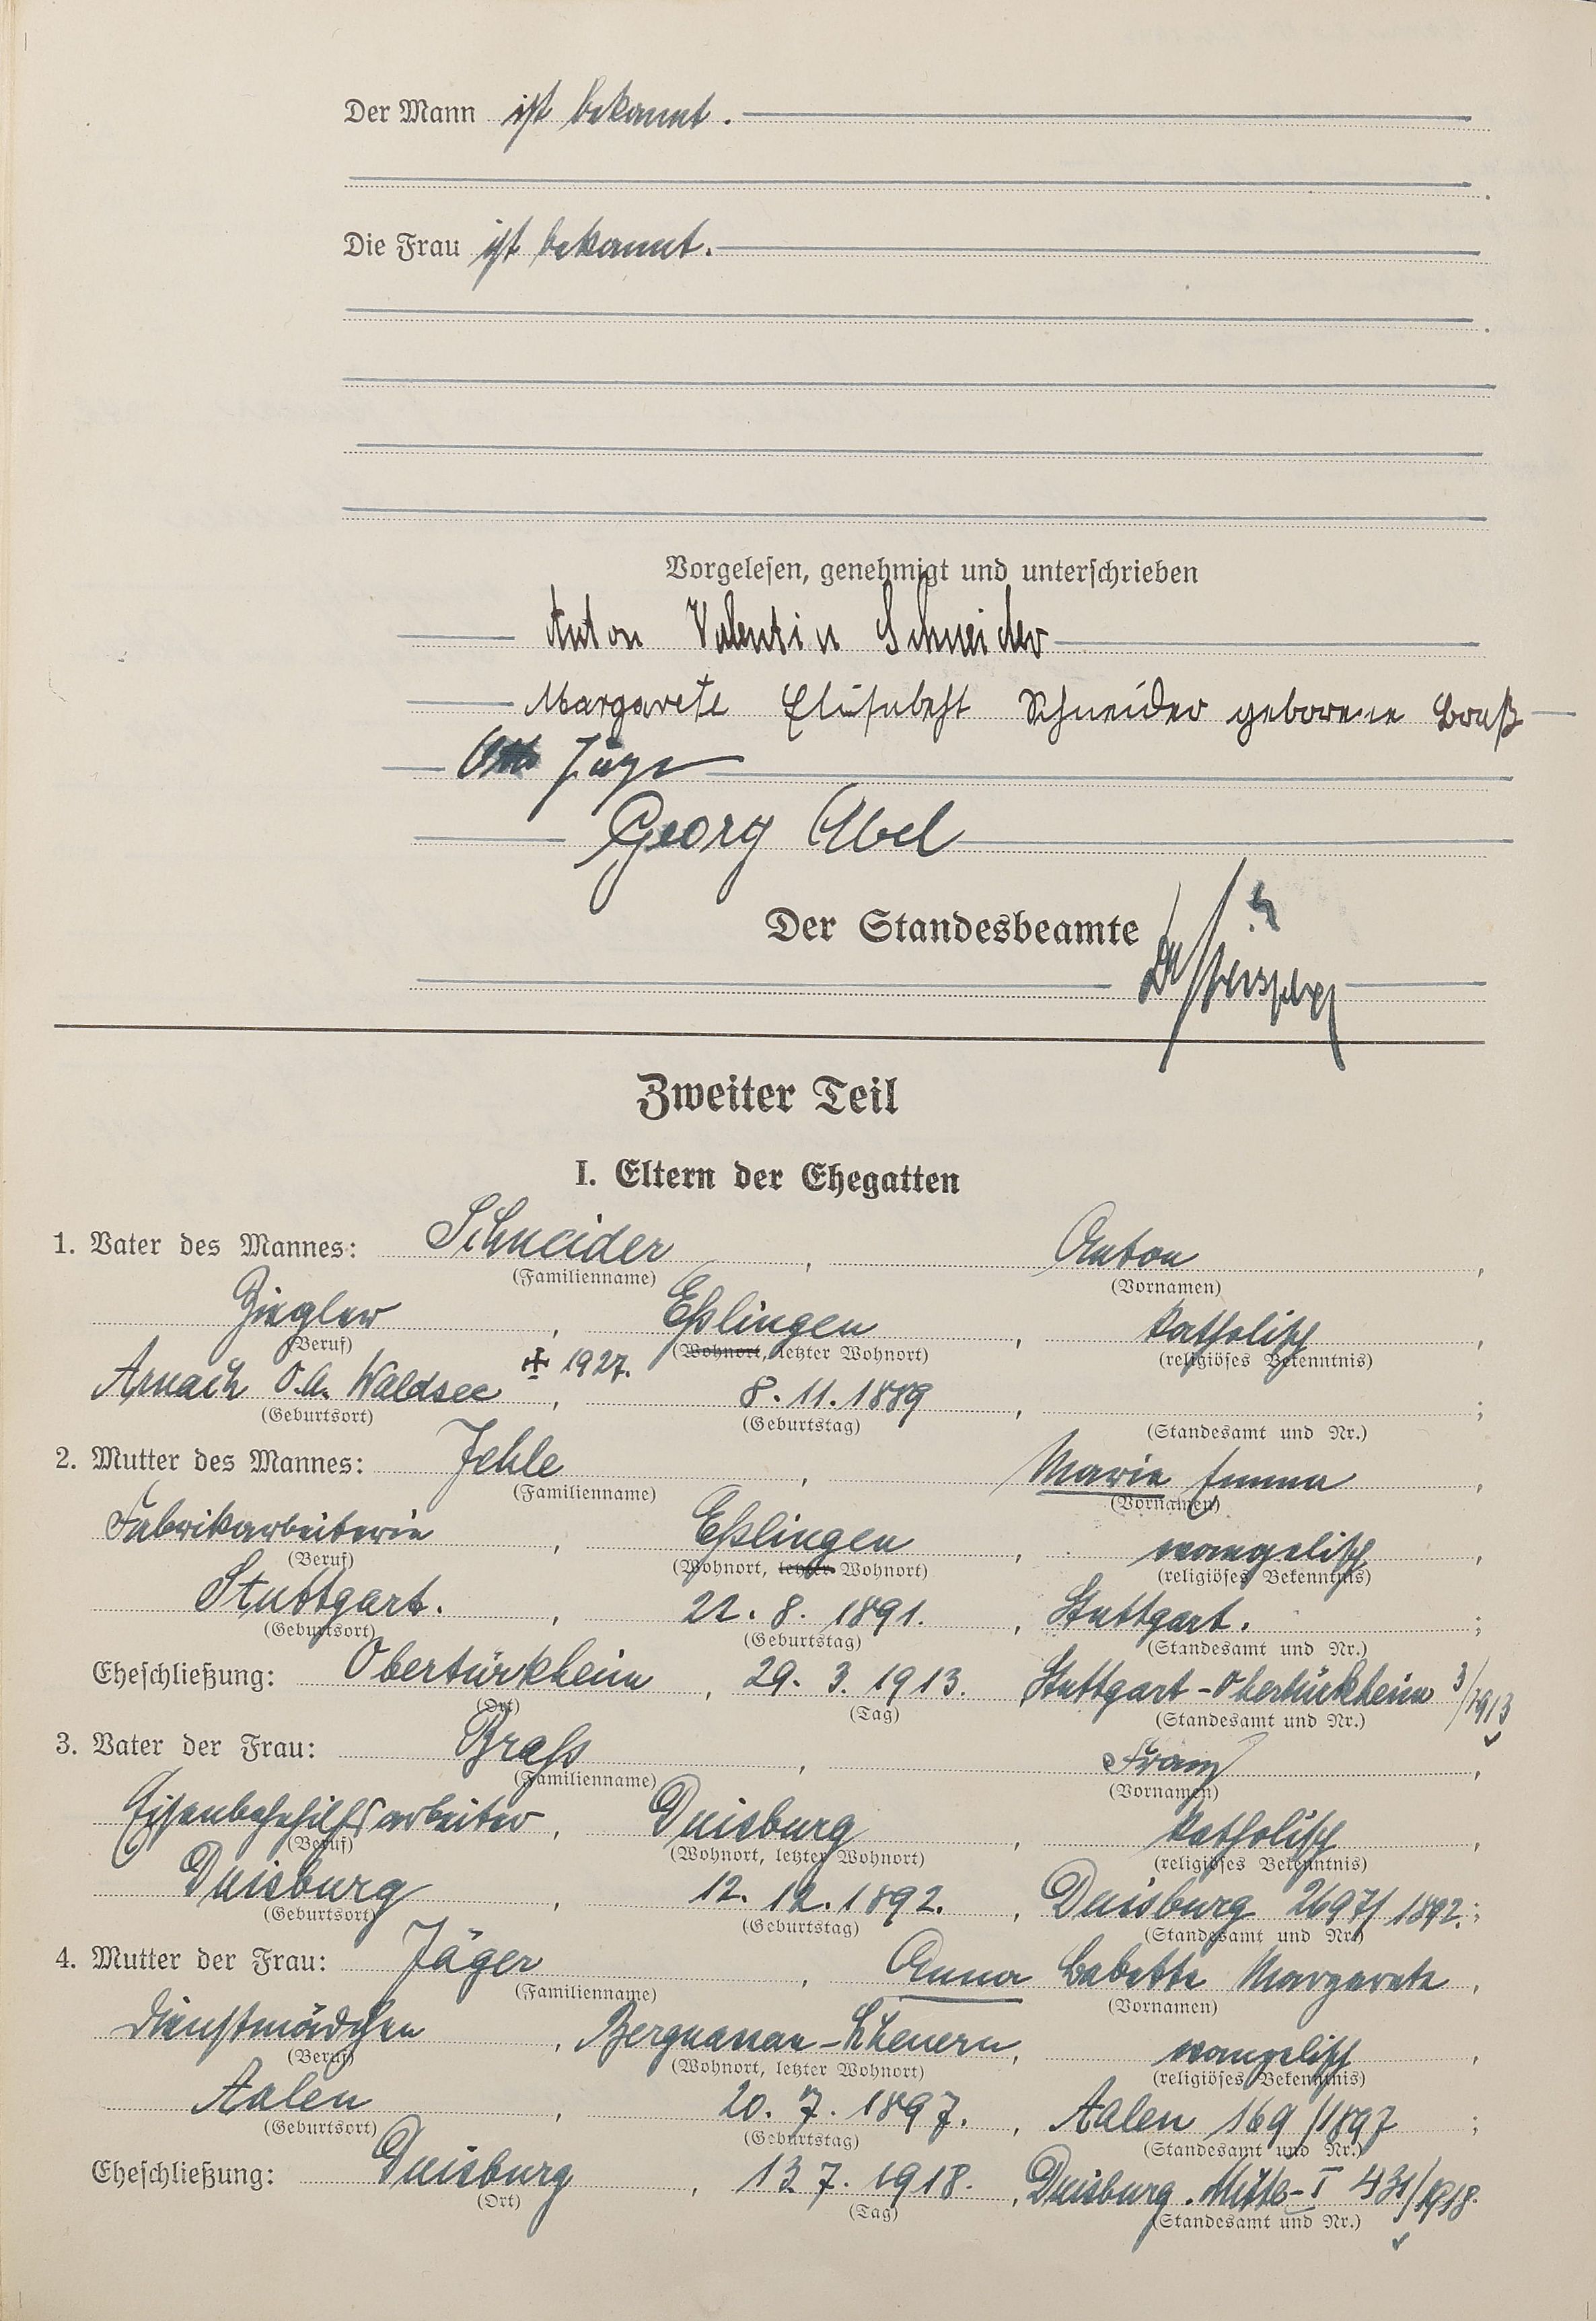 Der Mann ist bekannt.
Die Frau ist bekannt.
Vorgelesen, genehmigt und unterschrieben
Anton Valentin Schneider
Margarete Elisabeht Schneider geborene Braß
Otto Jäger
Georg Abel
Der Standesbeamte
Zweiter Teil
I. Eltern der Ehegatten
1. Vater des Mannes: Schneider, Anton,
(Familienname) (Vornamen)
Ziegler, Eßlingen, katholisch,
(Beruf) (Wohnort, letzter Wohnort) (religiöses Bekenntnis)
Arnach O.A. Waldsee ✠ 1927., 8.11.1889, ;
(Geburtsort) (Geburtstag) (Standesamt und Nr.)
2. Mutter des Mannes: Jehle, Marie Emma,
(Familienname) (Vornamen)
Fabrikarbeiterin, Eßlingen, evangelisch,
(Beruf) (Wohnort, letzter Wohnort) (religiöses Bekenntnis)
Stuttgart., 22. 8. 1891., Stuttgart. ;
(Geburtsort) (Geburtstag) (Standesamt und Nr.)
Eheschließung: Obertürkheim, 29. 3. 1913. Stuttgart-Obertürkheim 3/1913
(Ort) (Tag) (Standesamt und Nr.)
3. Vater der Frau: Braß, Franz,
(Familienname) (Vornamen)
Eisenbahnhilfsarbeiter, Duisburg, katholisch,
(Beruf) (Wohnort, letzter Wohnort) (religiöses Bekenntnis)
Duisburg, 12. 12. 1892., Duisburg 2697/1892.;
(Geburtsort) (Geburtstag) (Standesamt und Nr.)
4. Mutter der Frau: Jäger, Anna Babette Margarete,
(Familienname) (Vornamen)
Dienstmädchen, evangelisch,
(Beruf) (Wohnort, letzter Wohnort) (religiöses Bekenntnis)
Aalen, 20. 7. 1897., Aalen 169/1897 ;
(Geburtsort) (Geburtstag) (Standesamt und Nr.)
Eheschließung: Duisburg, 13. 7. 1918., Duisburg.Mitte-I 431/1918.
(Ort) (Tag) (Standesamt und Nr.)